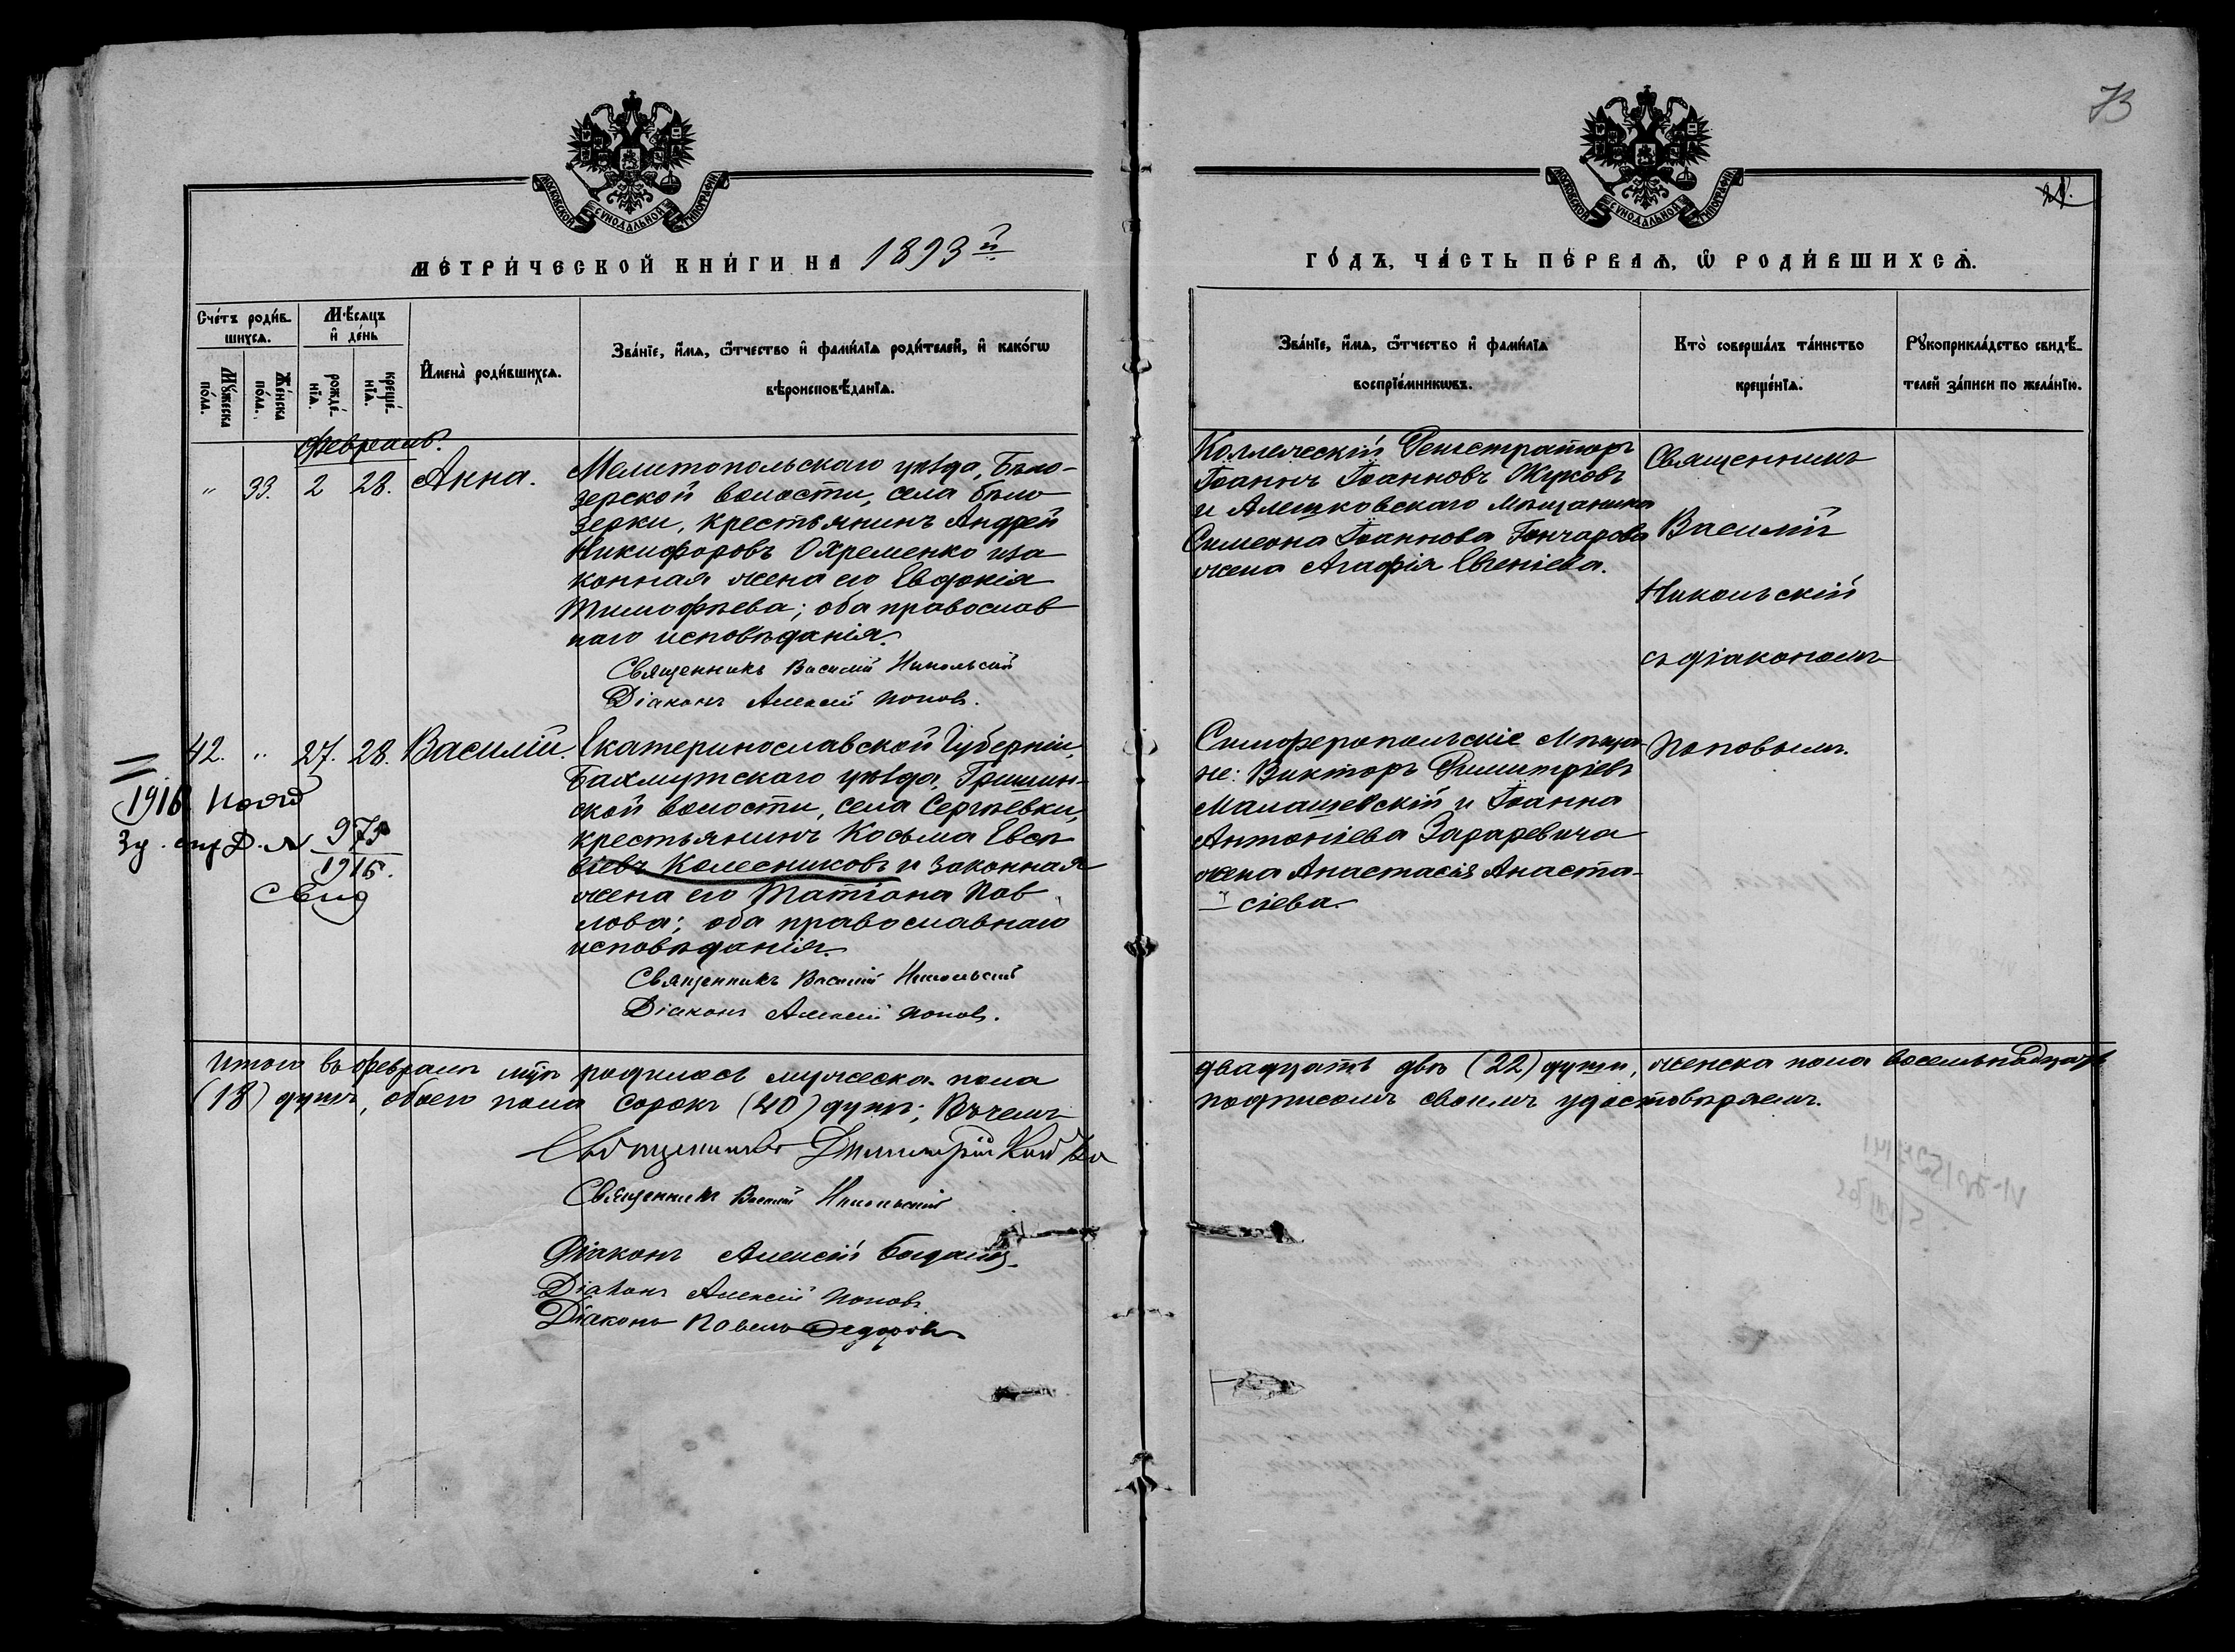 73
МОСКОВСКОЙ СУНОДАЛЬНОЙ ТИПОГРАФІИ
МОСКОВСКОЙ СУНОДАЛЬНОЙ ТИПОГРАФІИ
МЕТРИЧЕСКОЙ КНИГИ НА 1893й
ГОДЪ, ЧАСТЬ ПЕРВАЯ, Ѡ РОДИВШИХСЯ.
Счетъ родив-
шихся.
Мужеска
пола.
Женска
пола.
Мѣсяцъ
и день
рожде-
нія.
креще-
нія.
Имена родившихся.
Званіе, имя, ѿчество и фамилія родителей, и какогѡ
вѣроисповѣданія.
Званіе, имя, ѿчество и фамилія
воспріемникѡвъ.
Кто совершалъ таинство
крещенія.
Рукоприкладство свидѣ-
телей записи по желанію.
Февраль.
" 33. 2 28. Анна.
Мелитопольскаго уѣзда, Бѣло-
зерской волости, села Бѣло
зерки, крестьянинъ Андрей
Никифоровъ Охременко и за
конная жена его Евдокія
Тимофѣева; оба православ
наго исповѣданія.
Священникъ Василій Никольскій
Діаконъ Алексій Поповъ.
Коллежскій Регистраторъ
Іоаннъ Іоанновъ Жуковъ
и Алешковскаго мѣщанина
Симеона Іоаннова Гончарова
жена Агафія Евгеніева.
Священникъ
Василій
Никольскій
съ діакономъ
Поповымъ.
42. " 27. 28. Василій.
Екатеринославской Губерніи,
Бахмутскаго уѣзда, Гришин-
ской волости, села Сергѣевки,
крестьянинъ Косьма Евсѣ
віевъ Колесниковъ и законная
жена его Татіана Пав
лова; оба православнаго
исповѣданія.
Священникъ Василій Никольскій
Діаконъ Алексій Поповъ.
1916
973
1916.
Свид
Симферопольскіе мѣща-
не: Викторъ Димитріевъ
Малашевскій и Іоанна
Антоніева Захаревича
жена Анастасія Анаста-
сіева.
Итого въ февралѣ мцѣ родилось мужеска пола
(18) душъ, обоего пола сорокъ (40) душъ; въ чемъ
двадцать двѣ (22) души, женска пола восемьнадцать
подписомъ своимъ удостовѣряемъ.
Священникъ Димитрій
Священникъ Василій Никольскій
Діаконъ Алексій
Діаконъ Алексій Поповъ
Діаконъ Павелъ Федоровъ